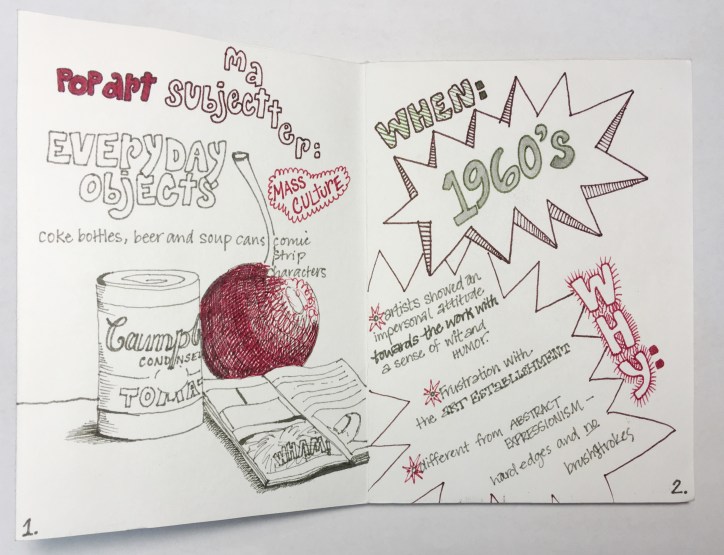 POP ART subject matter:
EVERYDAY
Objects
MASS
CULTURE
coke bottles, beer and soup cans, comic
strip
characters
Campb
CONDENSED
TOMA
WHAM!
1.
WHEN:
1960's
WHY:
artists showed an
impersonal attitude
towards the work with
a sense of wit and
HUMOR.
frustration with
the ART ESTABLISHMENT
different from ABSTRACT
EXPRESSIONISM—
hard edges and no
brushstrokes
2.